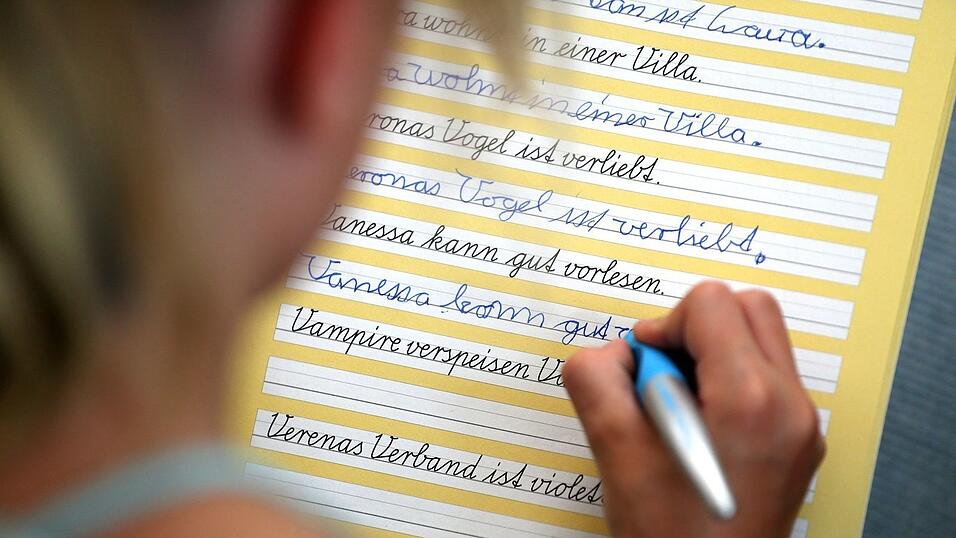 wohnt in einer Villa.
wohnt in einer Villa.
Vogel ist verliebt.
Vogel ist verliebt.
Vanessa kann gut vorlesen.
Vanessa kann gut
Vampire verspeisen
Verenas Verband ist violet